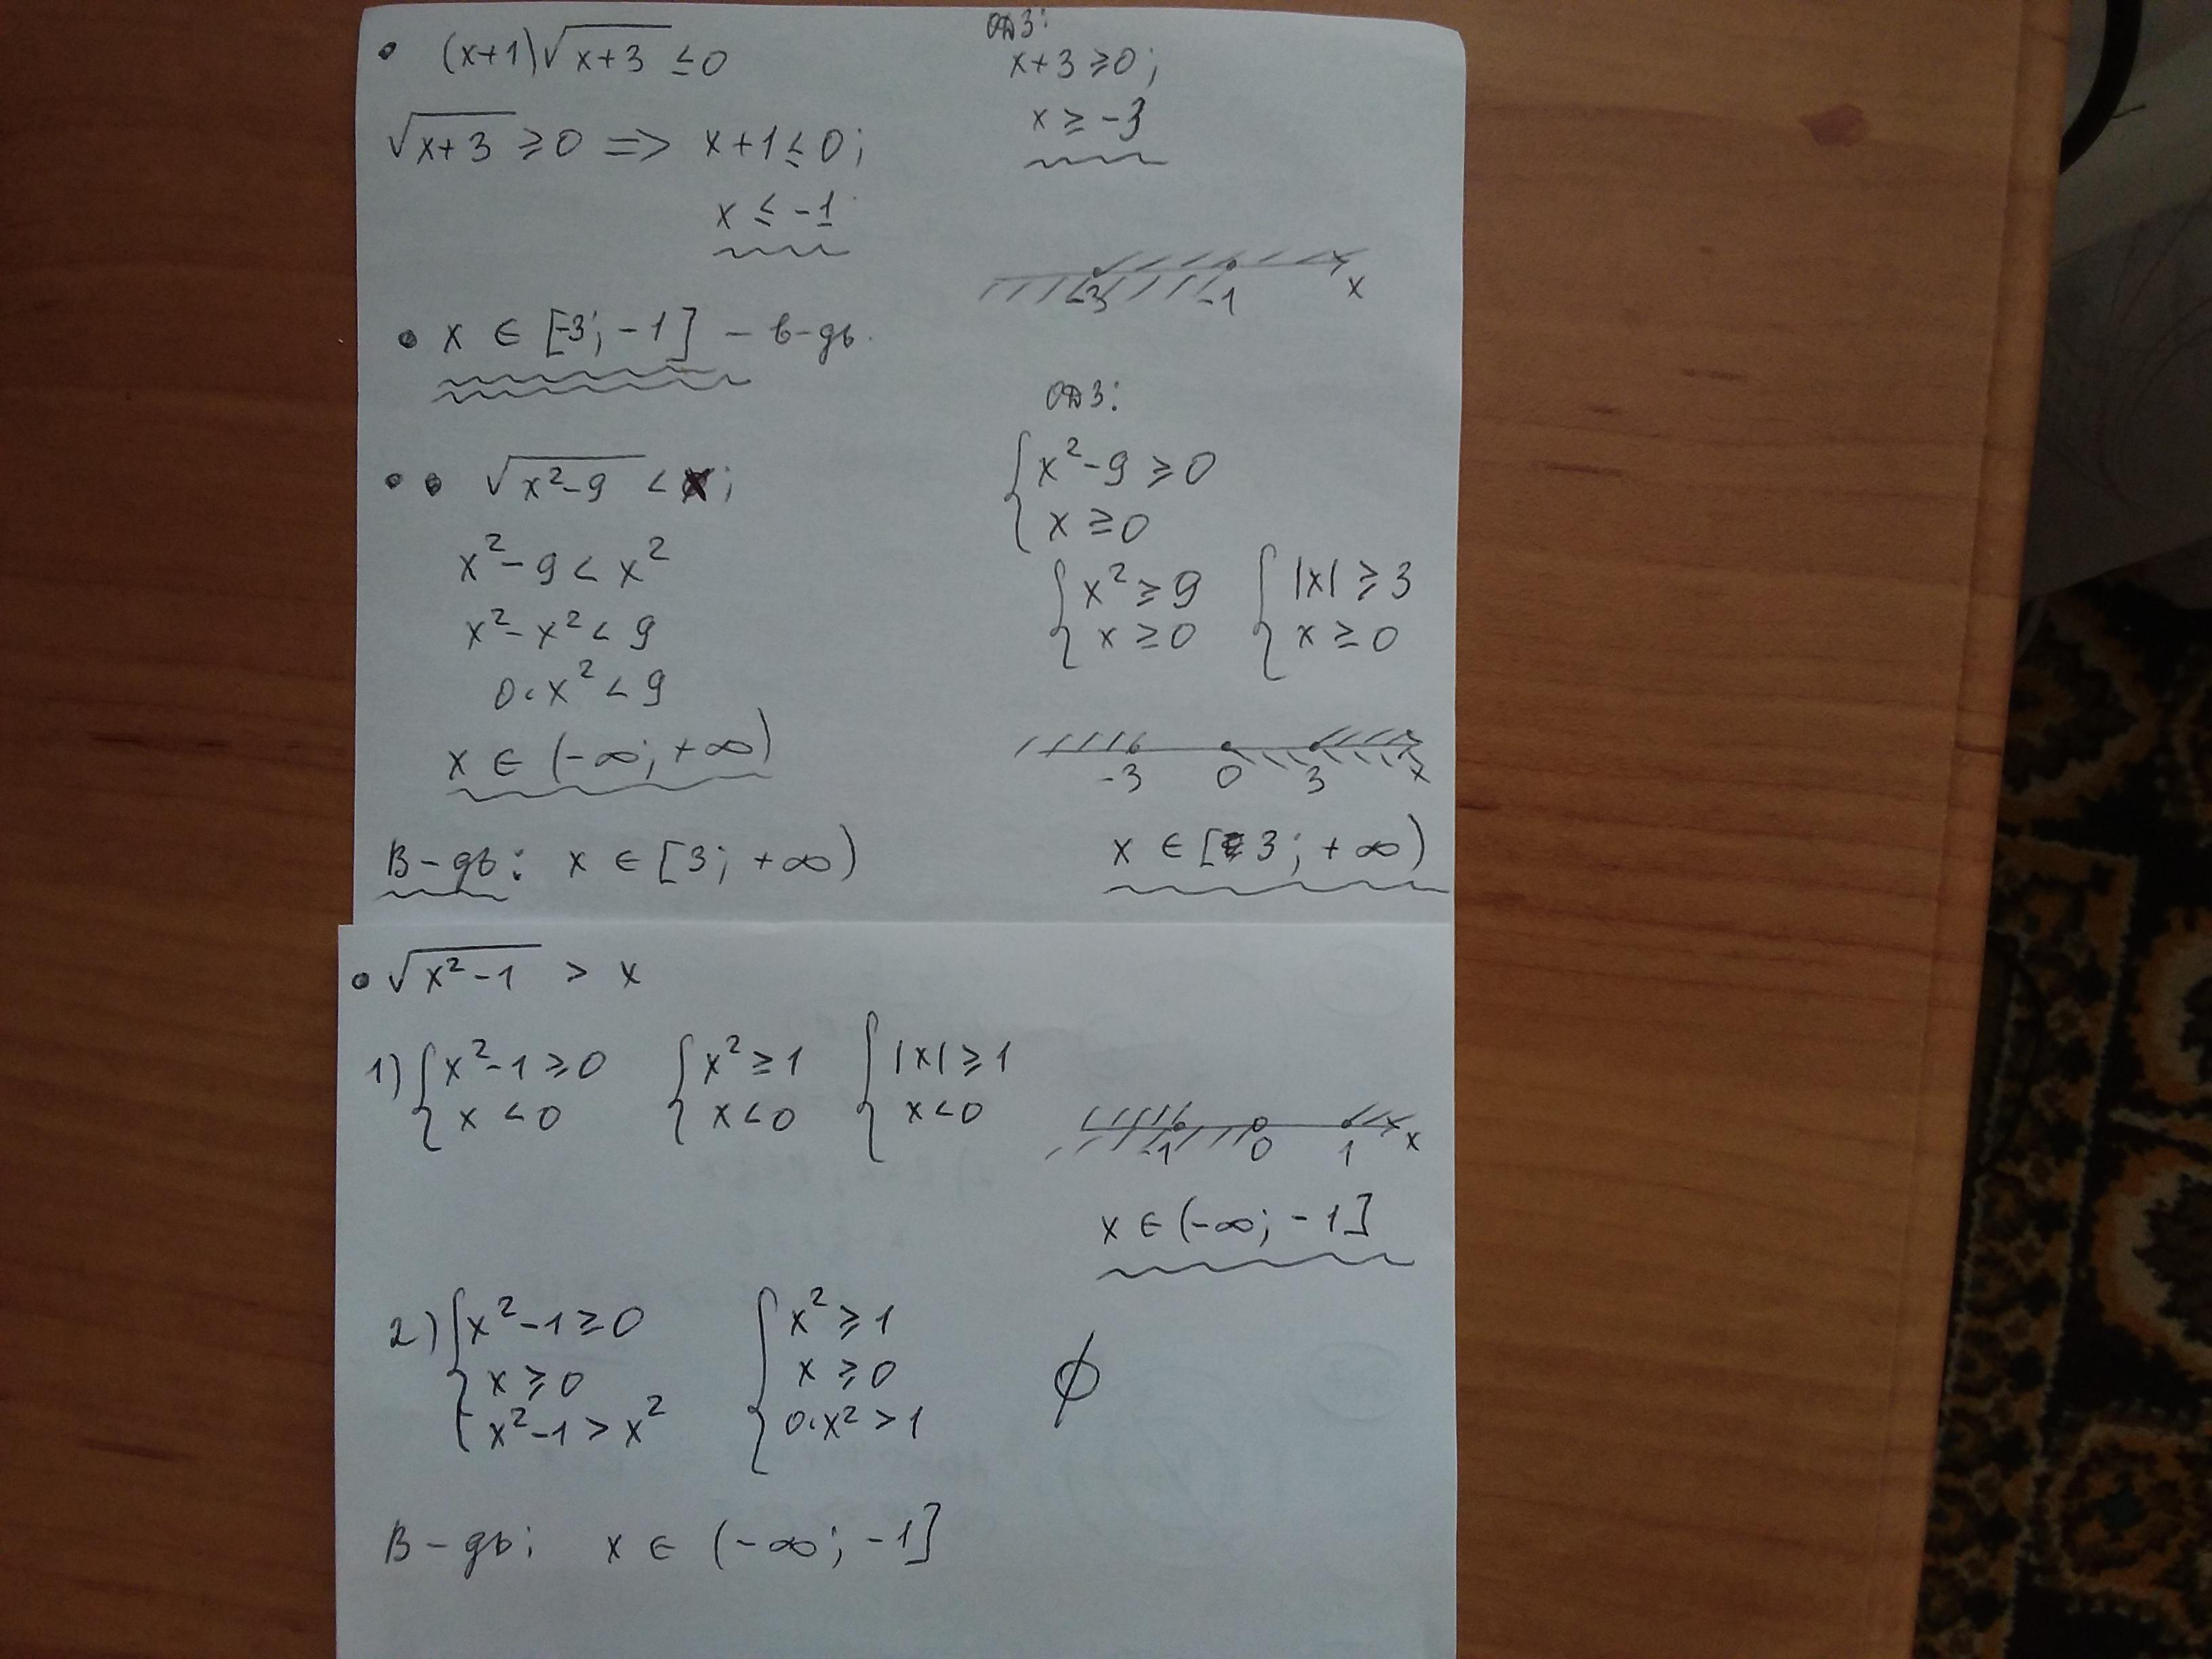 • (x+1)√(x+3) ≤ 0
ОДЗ:
x+3 ≥ 0;
x ≥ -3
√(x+3) ≥ 0 => x+1 ≤ 0;
x ≤ -1
-3 -1 x
• x ∈ [-3; -1] – в-дь.
• • √(x²-9) < x;
x²-9 < x²
x²-x² < 9
0·x² < 9
x ∈ (-∞; +∞)
ОДЗ:
{ x²-9 ≥ 0
x ≥ 0
{ x² ≥ 9 { |x| ≥ 3
x ≥ 0 x ≥ 0
-3 0 3 x
x ∈ [3; +∞)
В-дь: x ∈ [3; +∞)
• √(x²-1) > x
1) { x²-1 ≥ 0 { x² ≥ 1 { |x| ≥ 1
x < 0 x < 0 x < 0
-1 0 1 x
x ∈ (-∞; -1]
2) { x²-1 ≥ 0 { x² ≥ 1
x ≥ 0 x ≥ 0 ∅
x²-1 > x² 0·x² > 1
В-дь: x ∈ (-∞; -1]